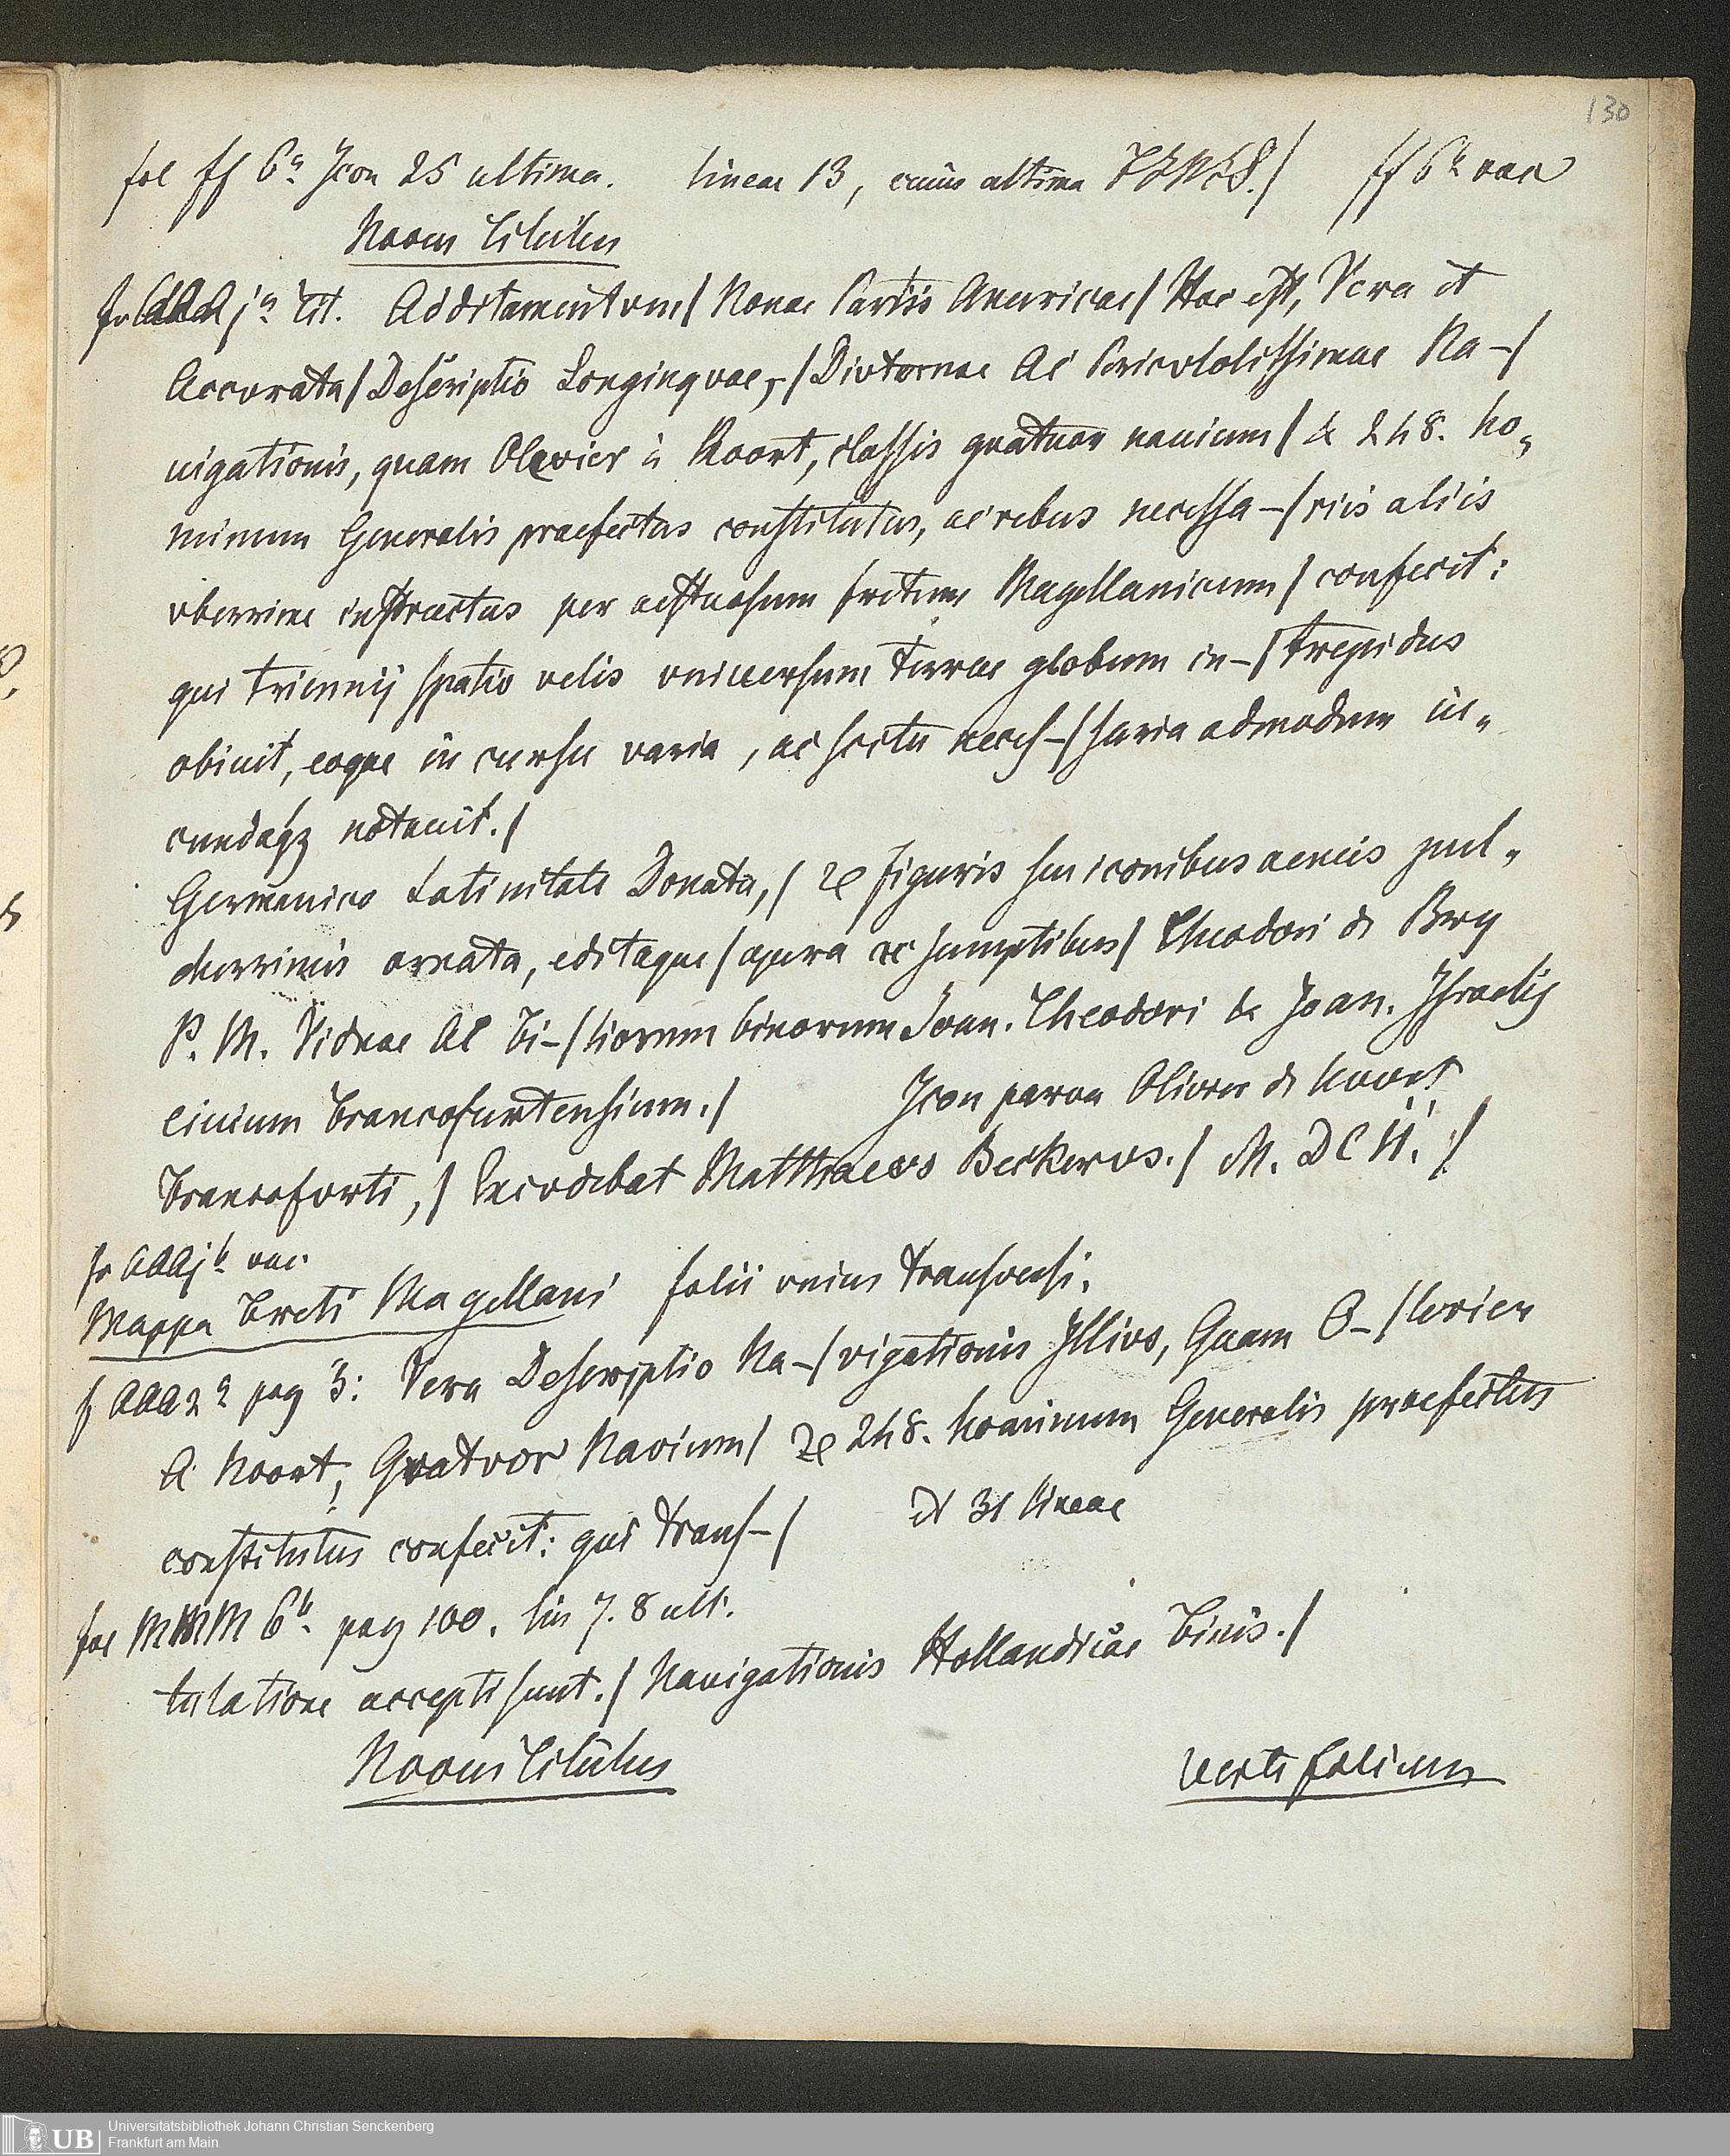 130
fol ff 6a Icon 25 ultima. lineae 13, cuius ultima / ff 6b vac
Novus Titulus
fo AAA ja Tit. Additamentvm / Nonae Partis Americae / Hoc est, Vera et
Accvrata / Descriptio Longinqvae, / Divtvrnae Ac Pericvlosissimae Na-/
uigationis, quam Olevier à Noort, classis quatuor nauium / & 248. ho„
minum Generalis praefectus constitutus, ac rebus necessa-/riis aliis
vberrime instructus per aestuosum fretum Magellanicum / confecit:
qui triennij spatio velis vniuersum terrae globum in-/trepidus
obiuit, eoque in cursu varia, ac scitu neces-/saria admodum iu„
cundaqꝫ notauit. /
Germanico Latinitate Donata, / & figuris seu iconibus aeneis pul„
cherrimis ornata, editaque / opera & sumptibus / Theodori de Bry
P. M. Vidvae Ac Fi-/liorum binorum Ioan. Theodori & Joan. Jsraelis
ciuium Francofurtensium. / Icon parva Olivier de Noort
Francofvrti, / Excvdebat Matthaevs Beckervs. / M. DC II. /
fo AAA jb vac.
Mappa Freti Magellani folii unius transversi.
f AAA 2a pag 3: Vera Descriptio Na-/vigationis Jllivs, Quam O-/levier
A Noort, Qvatvor Navium / & 248. hominum Generalis praefectus
constitutus confecit: qui trans-/ et 31 lineae
fol MMM 6b pag 100. lin 7. 8 ult.
tulatione accepti sunt. / Nauigationis Hollandicae Finis. /
Novus Titulus verte folium
UB Universitätsbibliothek Johann Christian Senckenberg
Frankfurt am Main